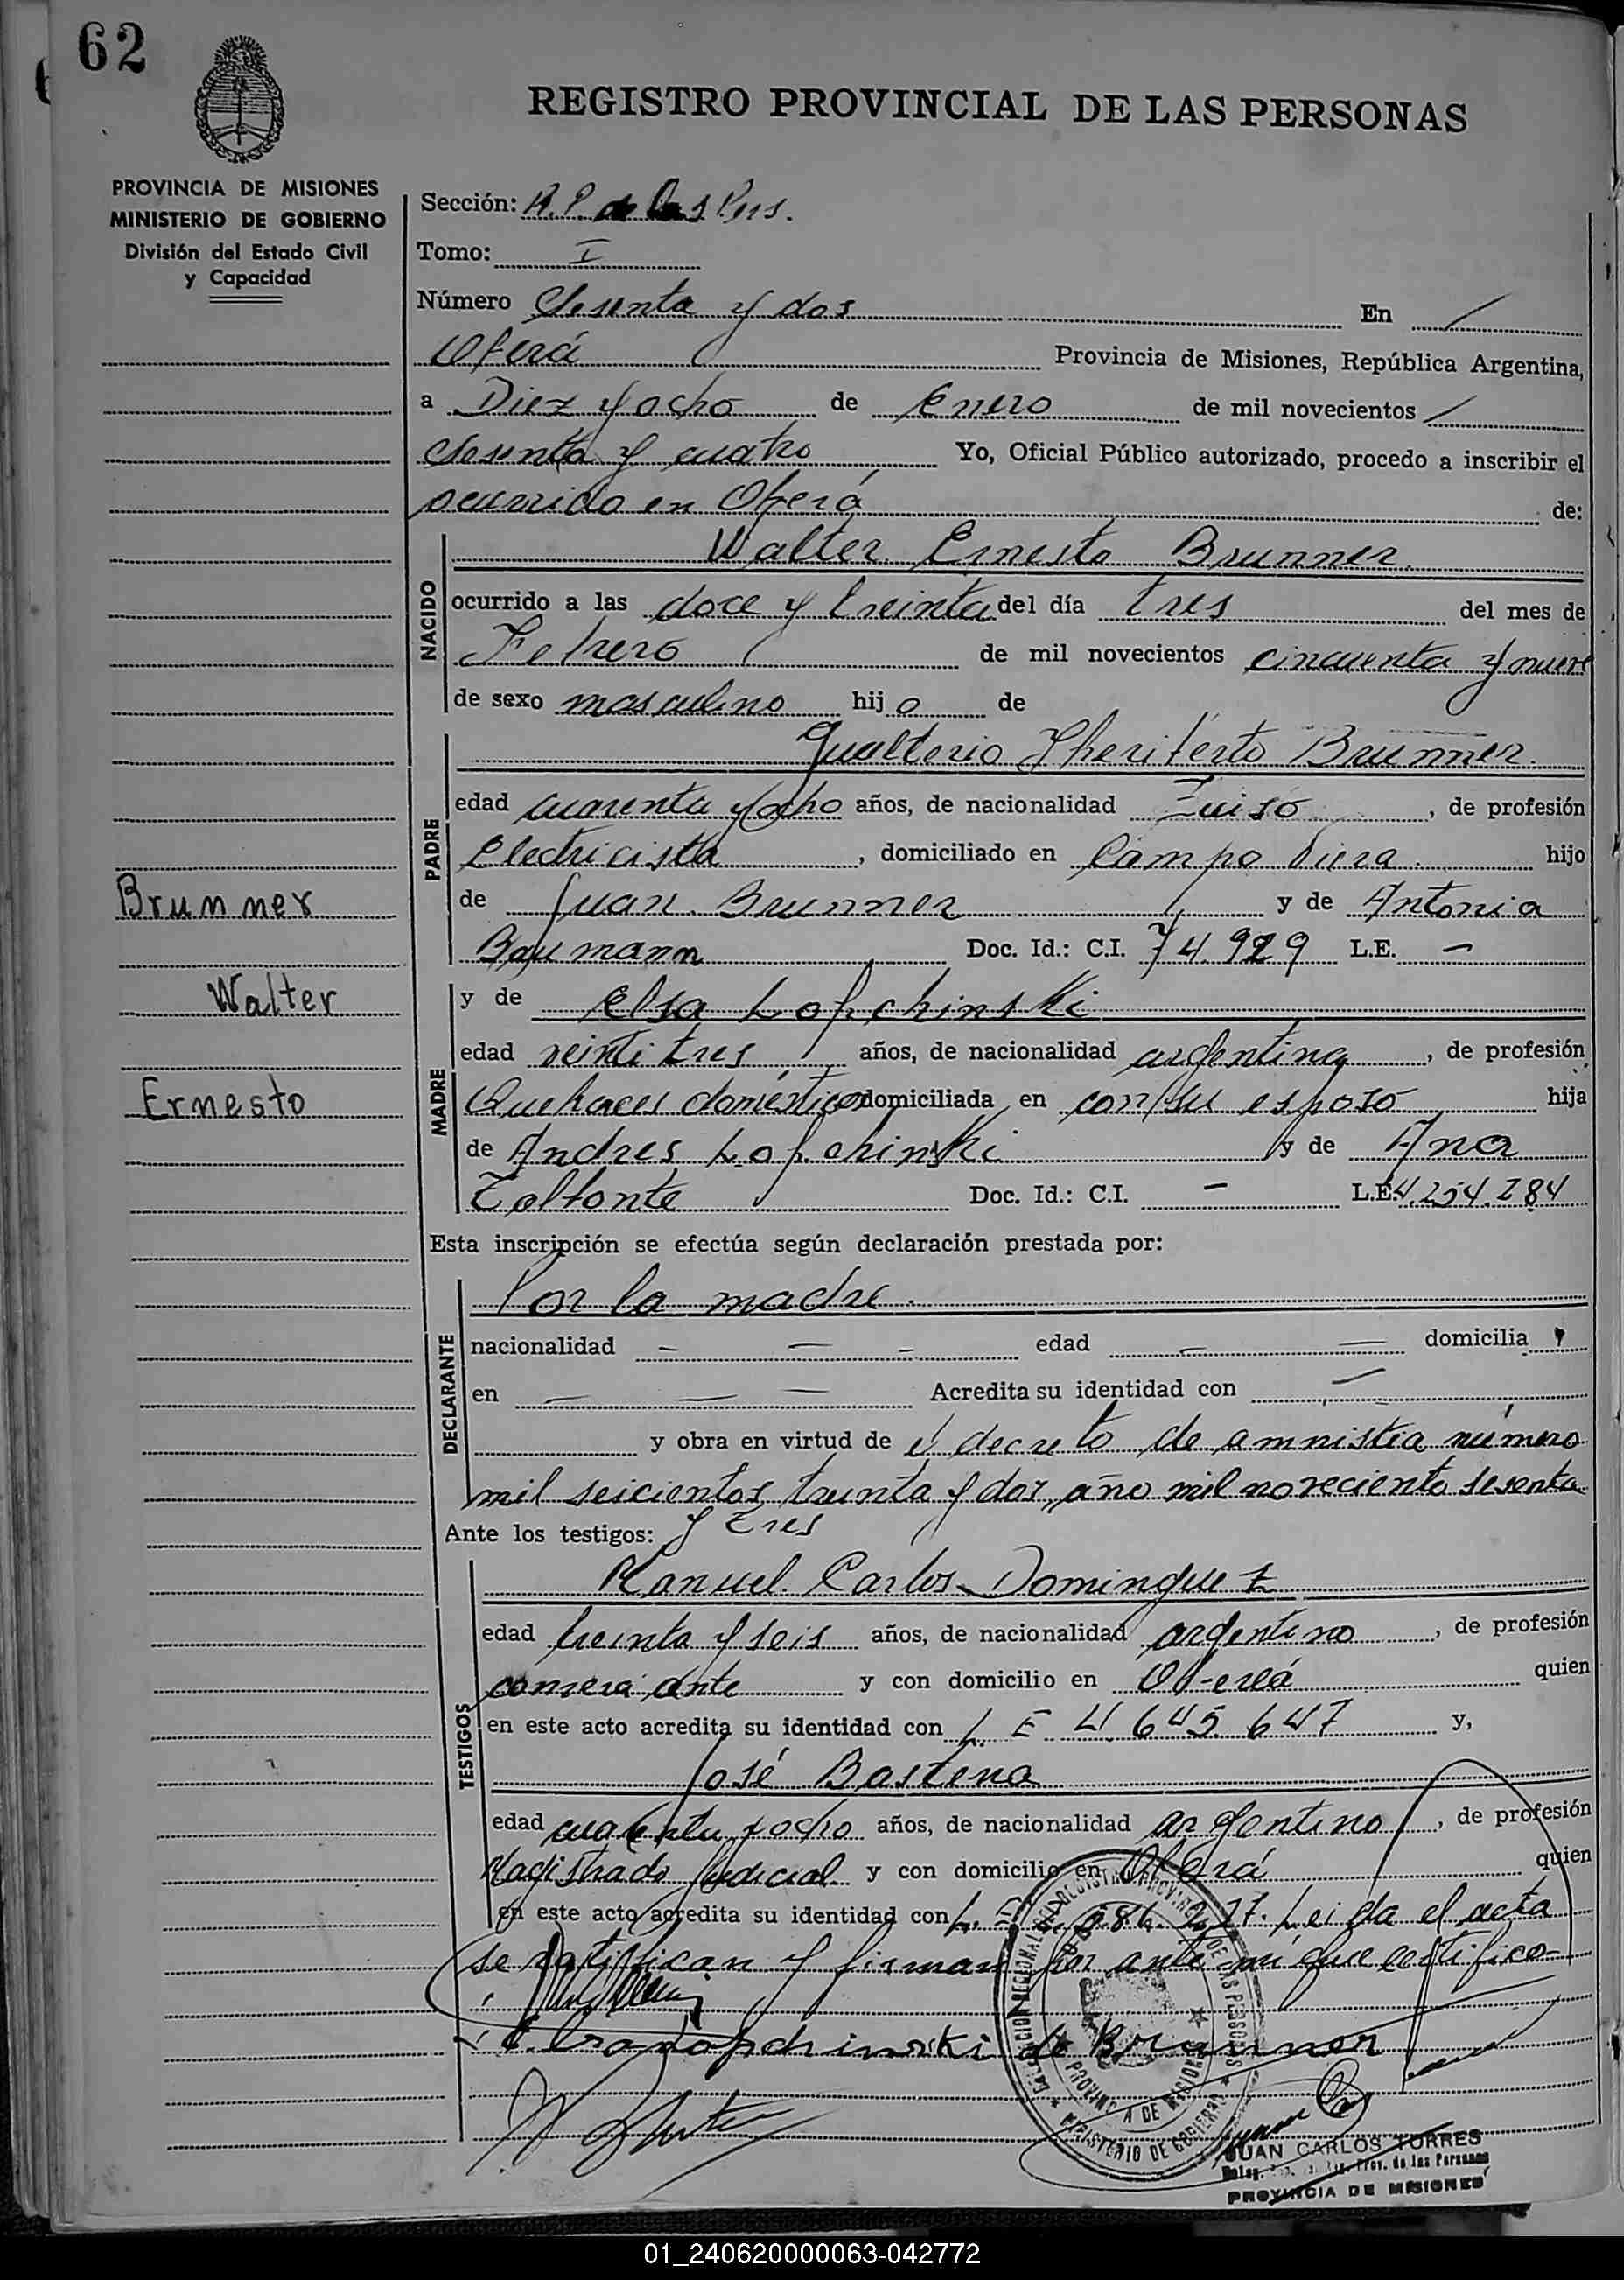 62
REGISTRO PROVINCIAL DE LAS PERSONAS
PROVINCIA DE MISIONES
MINISTERIO DE GOBIERNO
División del Estado Civil
y Capacidad
Sección: R. P. de las Pers.
Tomo: I
Número Sesenta y dos En
Oberá Provincia de Misiones, República Argentina,
a Diez y ocho de Enero de mil novecientos
Sesenta y cuatro Yo, Oficial Público autorizado, procedo a inscribir el
ocurrido en Oberá de:
NACIDO
Walter Ernesto Brunner
ocurrido a las doce y treinta del día tres del mes de
Febrero de mil novecientos cincuenta y nueve
de sexo masculino hijo de
PADRE
Gualterio Heriberto Brunner
edad cuarenta y ocho años, de nacionalidad Zuiso, de profesión
Electricista, domiciliado en Campo Viera hijo
de Juan Brunner y de Antonia
Baumann Doc. Id.: C.I. 74.929 L.E. -
Brunner
Walter
Ernesto
MADRE
y de Elsa Lopchinski
edad veinti tres años, de nacionalidad argentina, de profesión
Quehacer domésticos domiciliada en con su esposo hija
de Andres Lopchinski y de Ana
Doc. Id.: C.I. - L.E. 4.254.284
Esta inscripción se efectúa según declaración prestada por:
DECLARANTE
Por la madre.
nacionalidad - - - edad - - domicilia
en - - - Acredita su identidad con -
y obra en virtud de el decreto de amnistia número
mil seicientos treinta y dos, año mil noveciento sesenta
y tres
Ante los testigos:
TESTIGOS
Manuel Carlos Dominguez
edad treinta y seis años, de nacionalidad argentino, de profesión
comerciante y con domicilio en Oberá quien
en este acto acredita su identidad con L. E 4.645.647 y,
José Bastena
edad cuarenta y ocho años, de nacionalidad argentino, de profesión
Magistrado Judicial y con domicilio en Oberá quien
en este acto acredita su identidad con L. E Leida el acta
se ratifican y firman por ante mi que certifico
Elsa Lopchinski de Brunner
PROVINCIA DE MISIONES
MINISTERIO DE GOBIERNO
JUAN CARLOS TORRES
Prov. de las Personas
PROVINCIA DE MISIONES
01_240620000063-042772